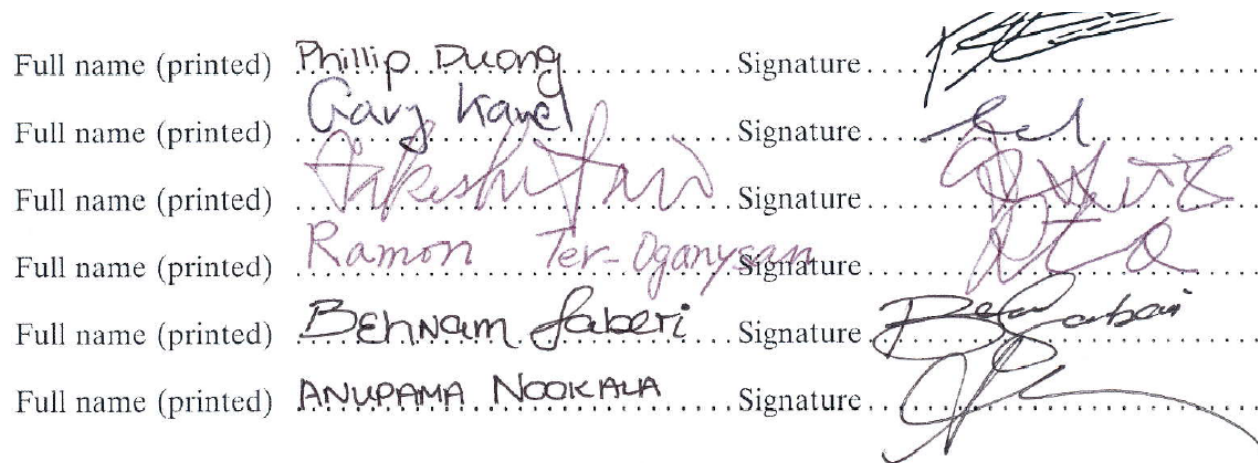 Full name (printed) Phillip Duong Signature
Full name (printed) Gary Karel Signature
Full name (printed) Takeshi Signature
Full name (printed) Ramon Ter-Oganysan Signature
Full name (printed) BEHNAM Saberi Signature
Full name (printed) ANUPAMA NOOKALA Signature